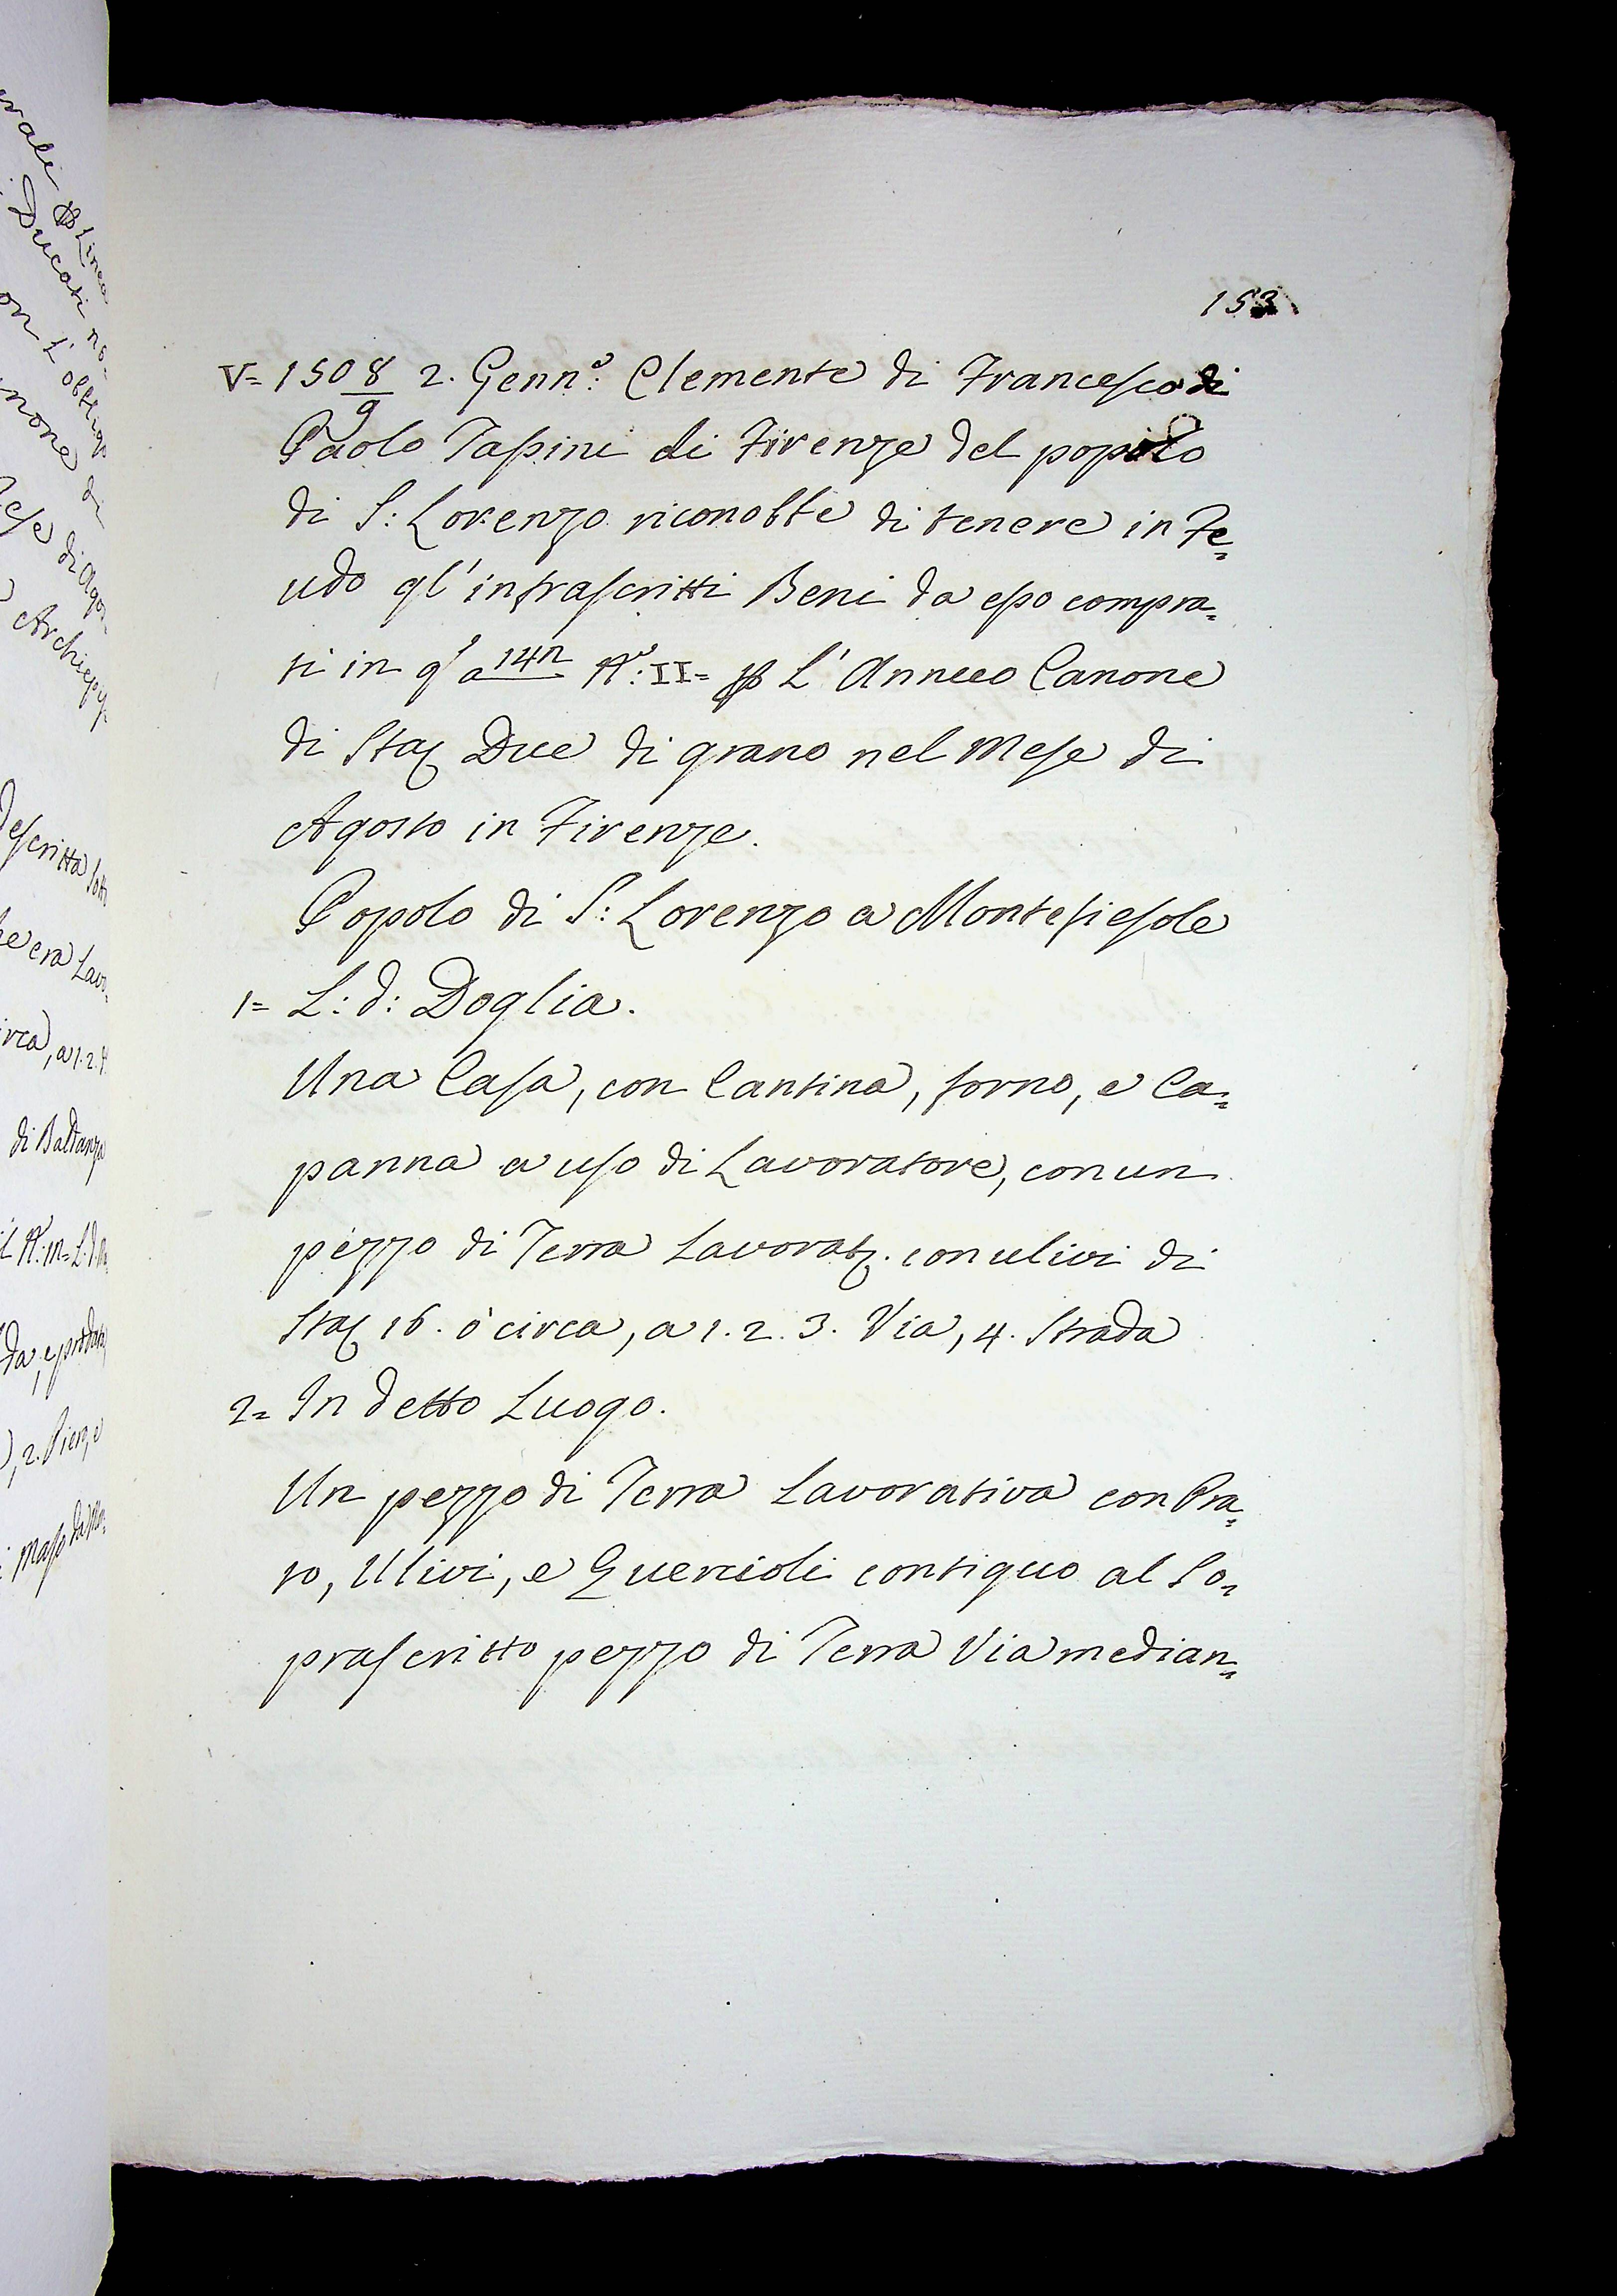 153
V= 1508/9 2. Genn.º: Clemente di Francesco di
Paolo Taſsini di Firenze del popolo
di S: Lorenzo riconobbe di tenere in Fe=
udo gl'infraſcritti Beni da eſso compra=
ti in q. a 14n N.º: II= ꝑ L'Annuo Canone
di Staᶎ Due di grano nel Meſe di
Agosto in Firenze.
Popolo di S: Lorenzo a Montefieſole
1= L: d: Doglia.
Una Caſa, con Cantina, forno, e Ca=
panna a uſo di Lavoratore, con un
pezzo di Terra Lavoratᶎ. con ulivi di
Staᶎ 16. ò circa, a 1. 2. 3. Via, 4. Strada
2= In detto Luogo.
Un pezzo di Terra Lavorativa con Pra=
to, Ulivi, e Quercioli contiguo al So=
praſcritto pezzo di Terra Via median=